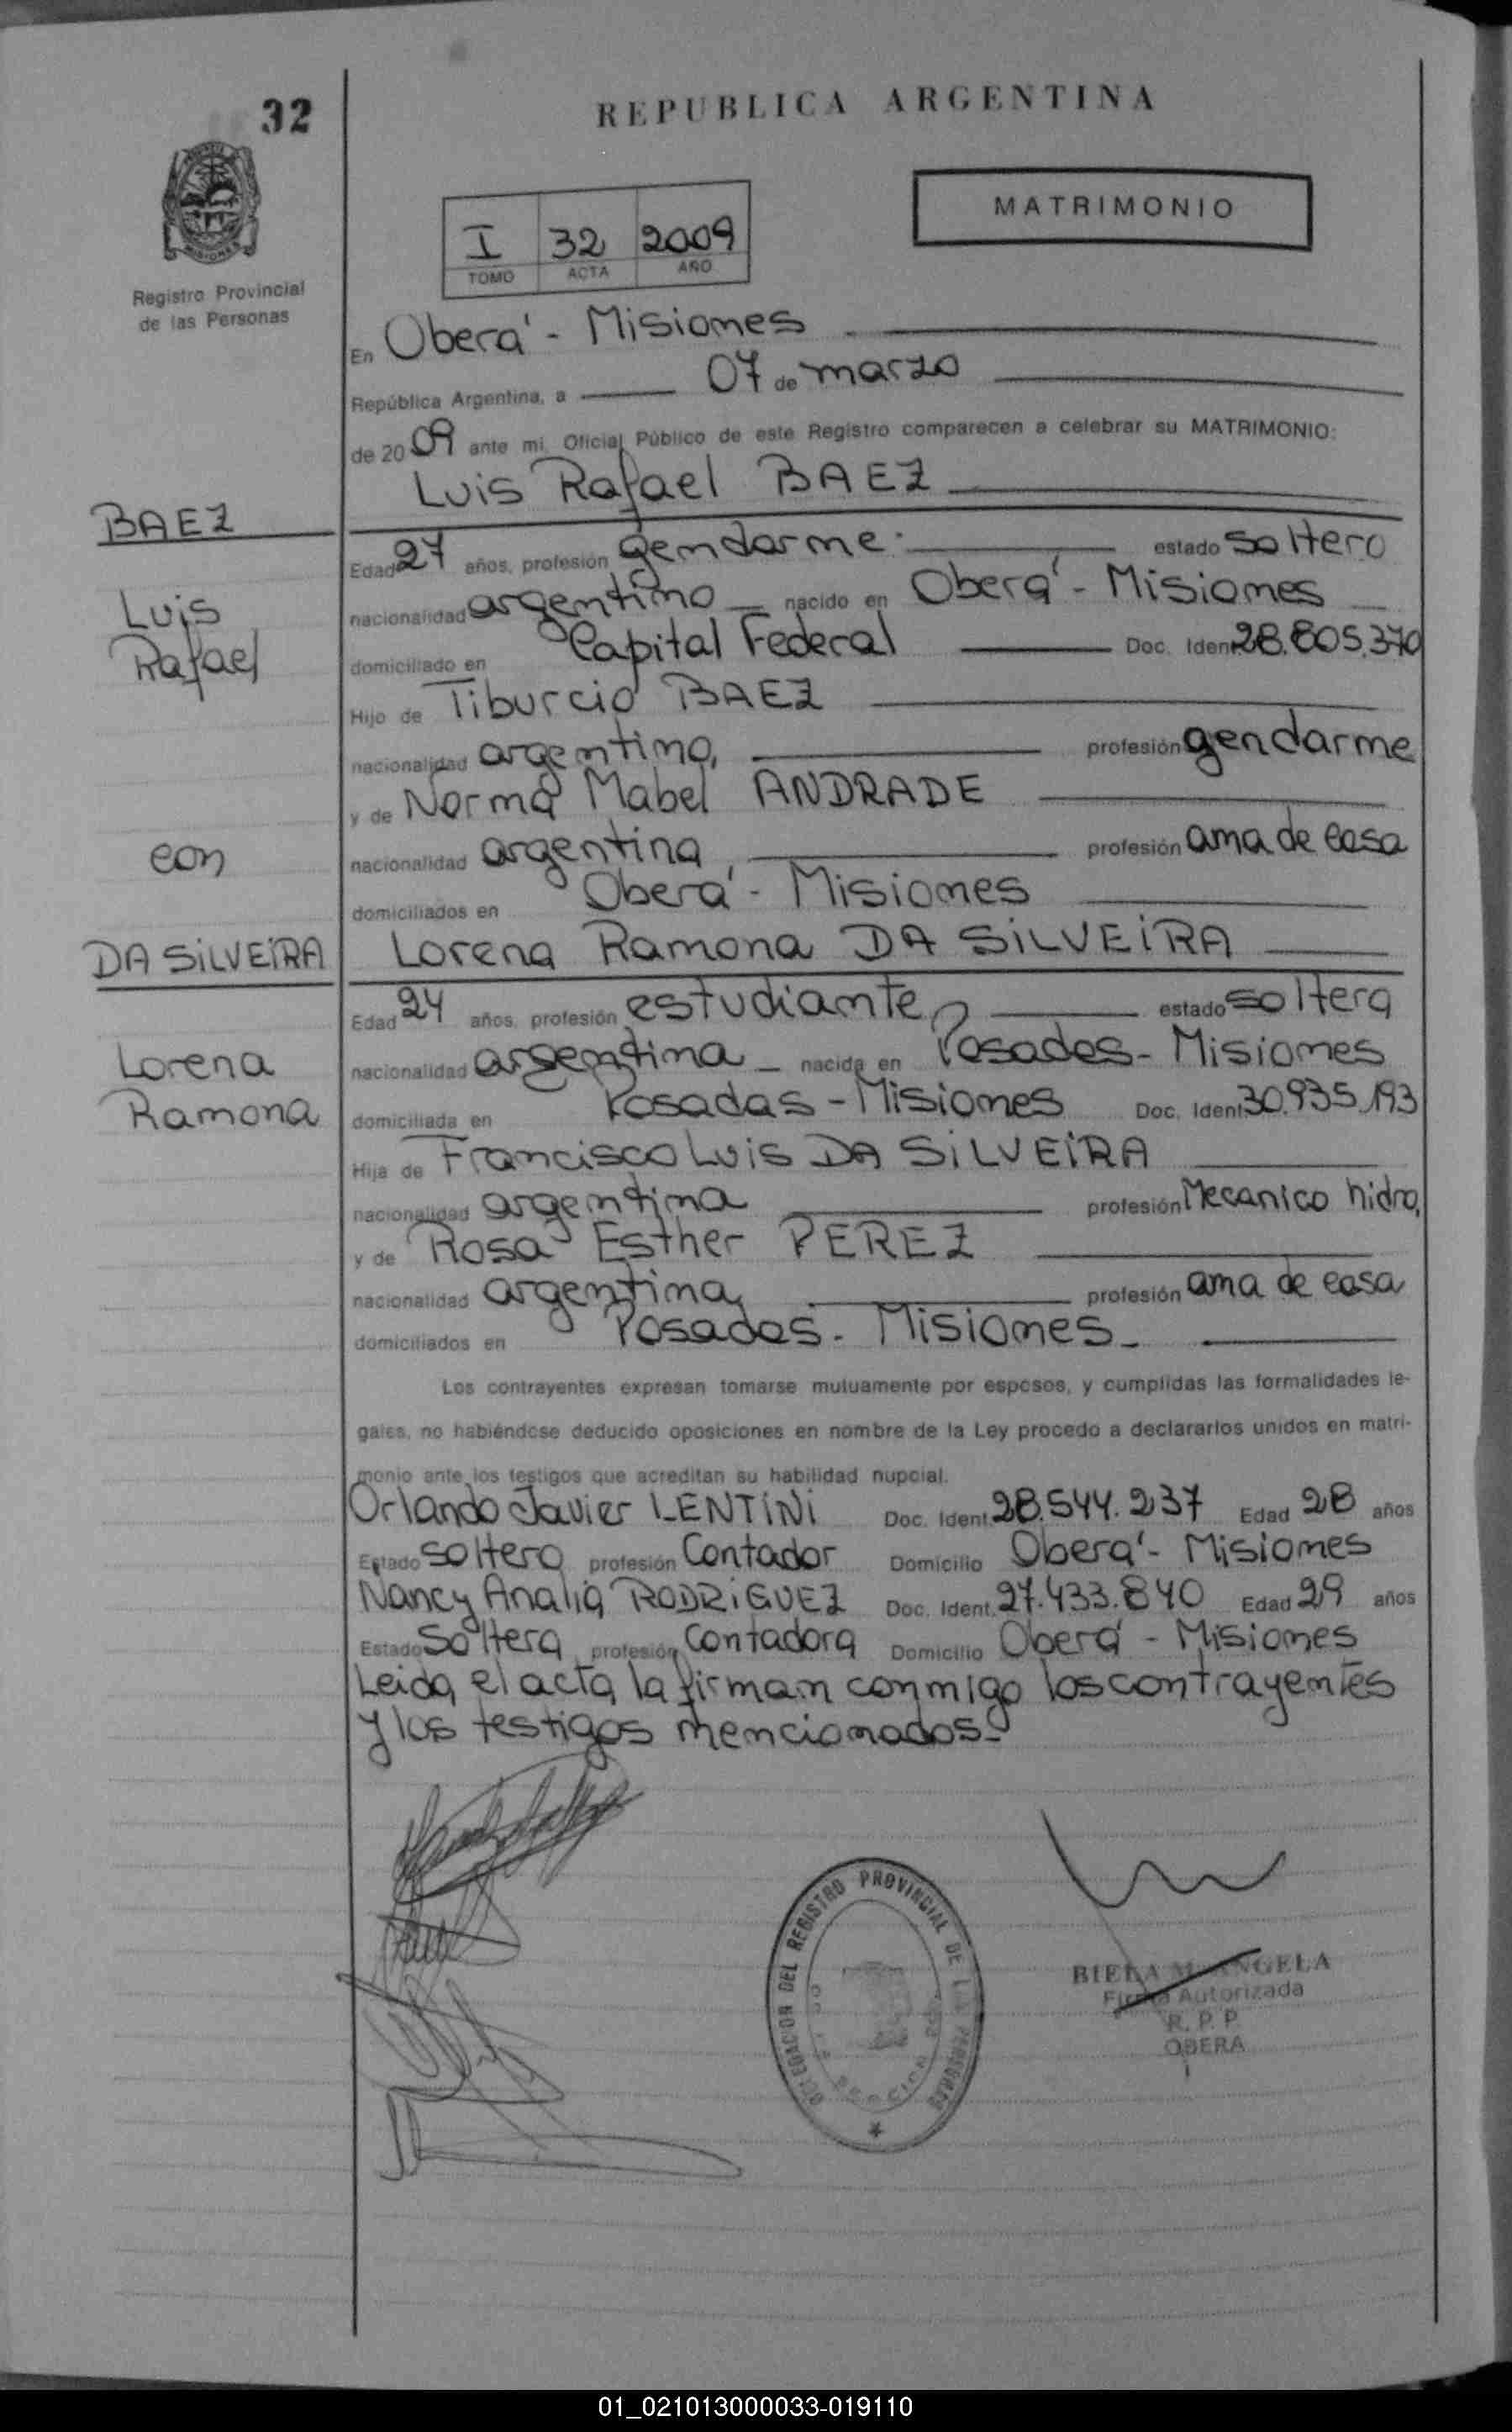 32
REPUBLICA ARGENTINA
MATRIMONIO
I 32 2009
TOMO ACTA AÑO
Registro Provincial
de las Personas
En Oberá - Misiones
República Argentina, a 07 de marzo
de 2009 ante mi, Oficial Público de este Registro comparecen a celebrar su MATRIMONIO:
Luis Rafael BAEZ
BAEZ
Luis
Rafael
Edad 27 años, profesión gendarme. estado soltero
nacionalidad argentino nacido en Oberá - Misiones
domiciliado en Capital Federal Doc. Ident. 28.805.370
Hijo de Tiburcio BAEZ
nacionalidad argentino, profesión gendarme
y de Norma Mabel ANDRADE
con
nacionalidad argentina, profesión ama de casa
domiciliados en Oberá - Misiones
DA SiLVEiRA
Lorena Ramona DA SiLVEiRA
Lorena
Ramona
Edad 24 años, profesión estudiante, estado soltera
nacionalidad argentina nacida en Posadas - Misiones
domiciliada en Posadas - Misiones Doc. Ident. 30.935.193
Hija de Francisco Luis DA SiLVEiRA
nacionalidad argentina profesión Mecanico hidro,
y de Rosa Esther PEREZ
nacionalidad argentina, profesión ama de casa
domiciliados en Posadas - Misiones
Los contrayentes expresan tomarse mutuamente por esposos, y cumplidas las formalidades le-
gales, no habiéndose deducido oposiciones en nombre de la Ley procedo a declararlos unidos en matri-
monio ante los testigos que acreditan su habilidad nupcial.
Orlando Javier LENTiNi Doc. Ident. 28.544.237 Edad 28 años
Estado soltero profesión Contador Domicilio Oberá - Misiones
Nancy Analia RODRiGUEZ Doc. Ident. 27.433.840 Edad 29 años
Estado Soltera profesión Contadora Domicilio Oberá - Misiones
Leida el acta la firman conmigo los contrayentes
y los testigos mencionados.-
DELEGACION DEL REGISTRO PROVINCIAL DE LAS PERSONAS
BIELA M. ANGELA
Firma Autorizada
R. P. P.
OBERA
01_021013000033-019110